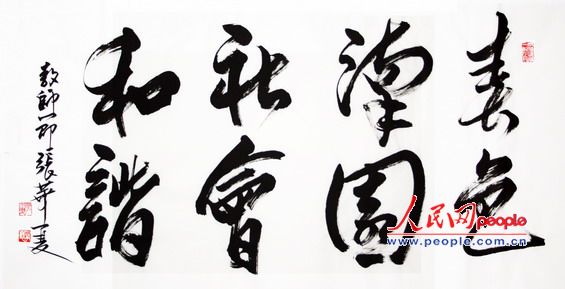 春色
滿園
社會
和諧
教師節張華夏
人民网people
www.people.com.cn